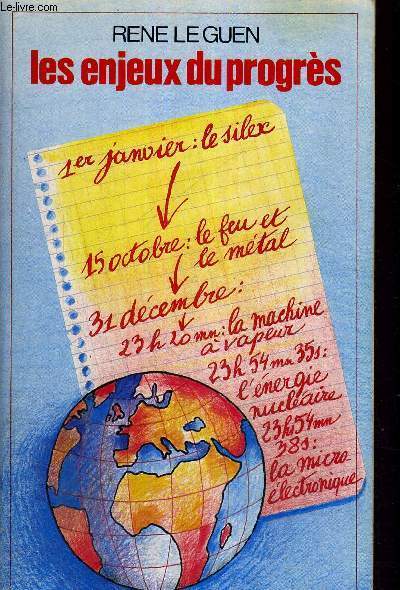 Le-livre.com
RENE LE GUEN
les enjeux du progrès
1er janvier : le silex
15 octobre : le feu et
le métal
31 décembre :
23 h 20 mn : la machine
à vapeur
23 h 54 mn 35 s :
l'énergie
nucléaire
23 h 54 mn
38 s :
la micro
électronique